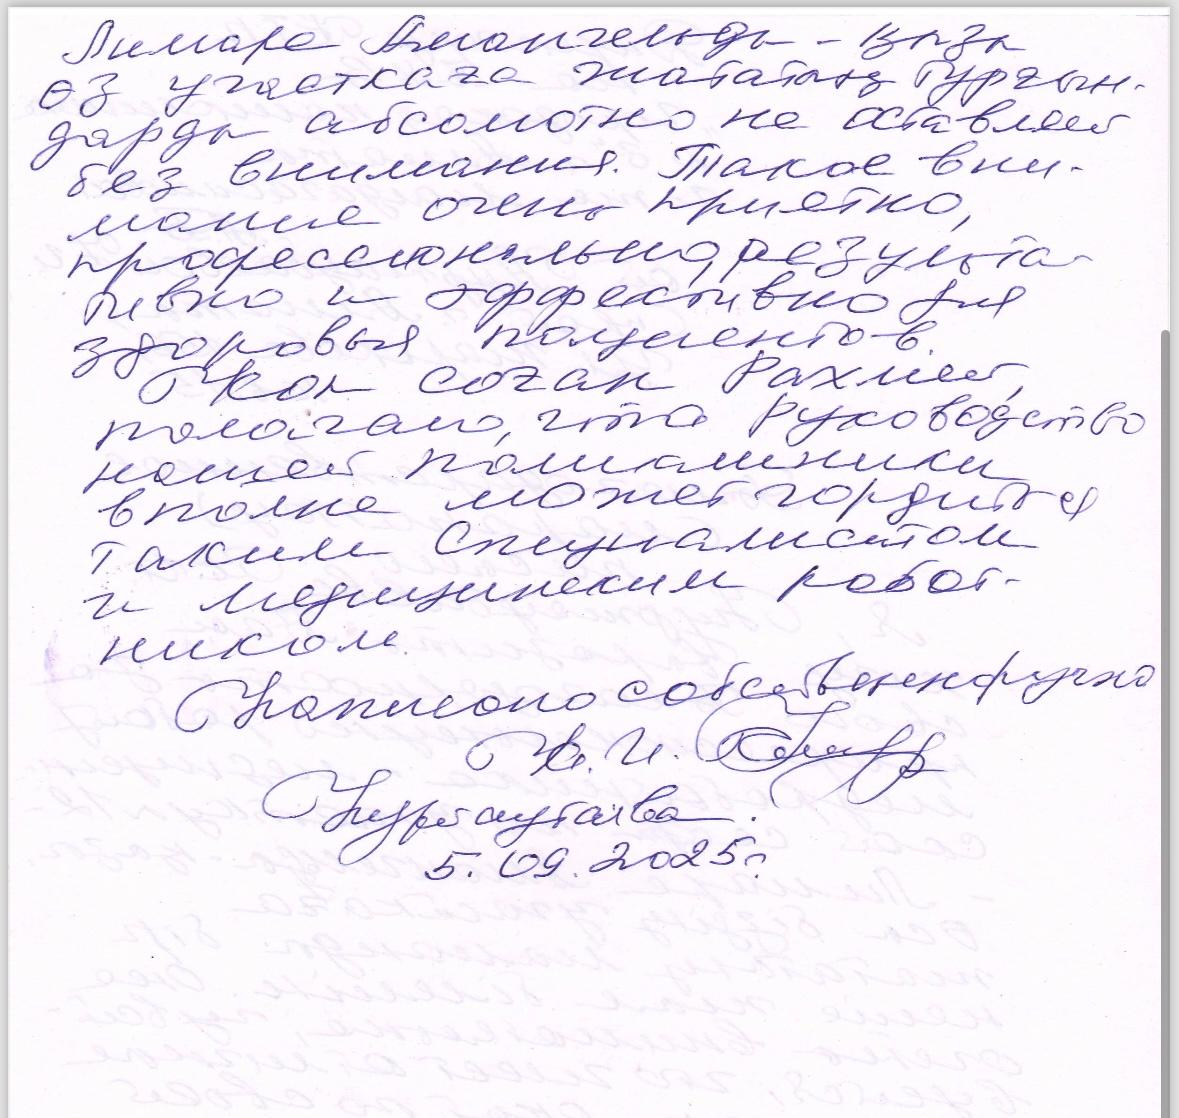 Лимара Амангельды-қызы
өз участкаға жататын тұрғын-
дарды абсолютно не оставляет
без внимания. Такое вни-
мание очень приятно,
профессионально, результа-
тивно и эффективно для
здоровья пациентов.
Көп соған Рахмет,
полагаю, что Руководство
нашей поликлиники
вполне может гордится
таким специалистом
и медицинским работ-
ником.
Написано собственноручно
И.
5.09.2025г.